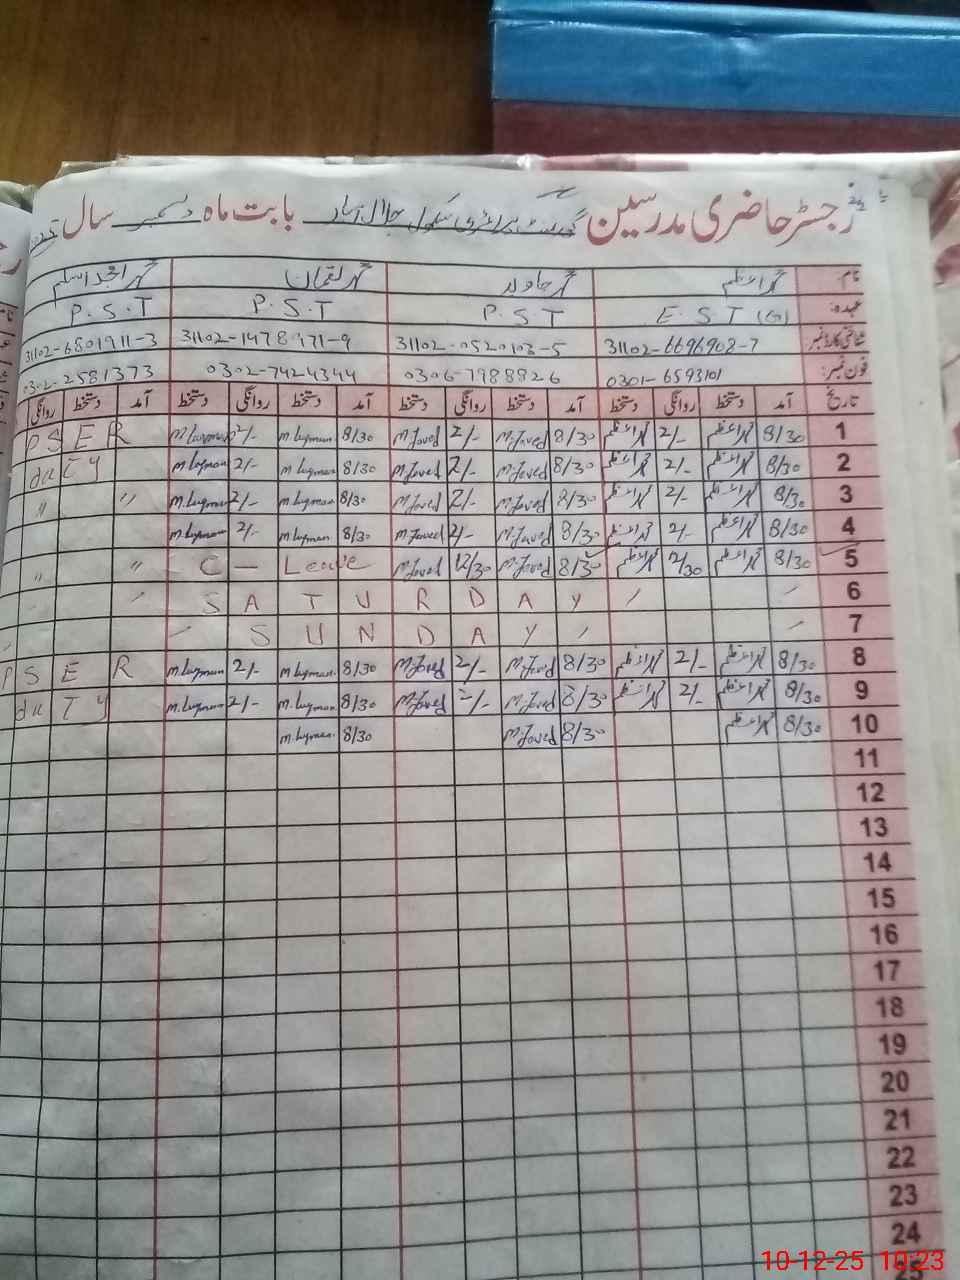 رجسٹر حاضری مدرسین گورنمنٹ پرائمری سکول جلال آباد بابت ماہ دسمبر سال 2025
نام: محمد اعظم محمد جاوید محمد لقمان محمد امجد اسلم
عہدہ: E.S.T (G) P.S.T P.S.T P.S.T
شناختی کارڈ نمبر 31102-6696908-7 31102-0520103-5 31102-1478971-9 31102-6801911-3
فون نمبر: 0301-6593101 0306-7988826 0302-7424344 0302-2581373
تاریخ آمد دستخط روانگی دستخط آمد دستخط روانگی دستخط آمد دستخط روانگی دستخط آمد دستخط روانگی
1 8/30 محمد اعظم 2/- محمد اعظم 8/30 M.Javed 2/- M.Javed 8/30 M.Luqman 2/- M.Luqman PSER
2 8/30 محمد اعظم 2/- محمد اعظم 8/30 M.Javed 2/- M.Javed 8/30 M.Luqman 2/- M.Luqman duty
3 8/30 محمد اعظم 2/- محمد اعظم 8/30 M.Javed 2/- M.Javed 8/30 M.Luqman 2/- M.Luqman " "
4 8/30 محمد اعظم 2/- محمد اعظم 8/30 M.Javed 2/- M.Javed 8/30 M.Luqman 2/- M.Luqman
5 8/30 محمد اعظم 12/30 محمد اعظم 8/30 M.Javed 12/30 M.Javed C - Leave " "
6 SATURDAY
7 SUNDAY
8 8/30 محمد اعظم 2/- محمد اعظم 8/30 M.Javed 2/- M.Javed 8/30 M.Luqman 2/- M.Luqman PSER
9 8/30 محمد اعظم 2/- محمد اعظم 8/30 M.Javed 2/- M.Javed 8/30 M.Luqman 2/- M.Luqman duTy
10 8/30 محمد اعظم 8/30 M.Javed 8/30 M.Luqman
11
12
13
14
15
16
17
18
19
20
21
22
23
24
10-12-25 10:23